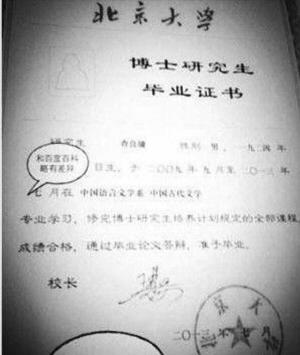 北京大学
博士研究生
毕业证书
研究生 查良镛 性别 男，一九二四年
和百度百科
略有差异
日生，于二〇〇九年九月至二〇一三年
七月在 中国语言文学系 中国古代文学
专业学习，修完博士研究生培养计划规定的全部课程，
成绩合格，通过毕业论文答辩，准予毕业。
校长
二〇一三年七月